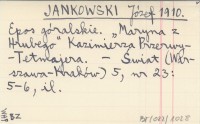 JANKOWSKI Józef 1910.
Epos góralskie. „Maryna z
Hrubego" Kazimierza Przerwy-
Tetmajera. - Świat (War-
szawa-Kraków) 5, nr 23:
5-6, il.
BZ